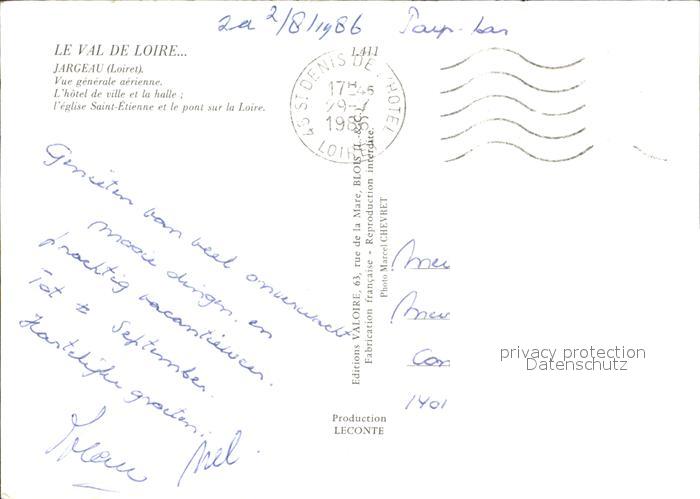 za 2/8/1986 Pays-bas
LE VAL DE LOIRE...
JARGEAU (Loiret).
Vue générale aérienne.
L'hôtel de ville et la halle ;
l'église Saint-Étienne et le pont sur la Loire.
1.411
45 ST DENIS DE L'HOTEL
17H45
29-7
1986
LOIRET
Genieten van veel onverwacht
mooie dingen en
prachtig vacantieweer.
Tot September.
Hartelijke groeten.
Editions VALOIRE, 63, rue de la Mare, BLOIS (L.-&-C.)
Fabrication française - Reproduction interdite.
Photo Marcel CHEVRET
1401
privacy protection
Datenschutz
Production
LECONTE